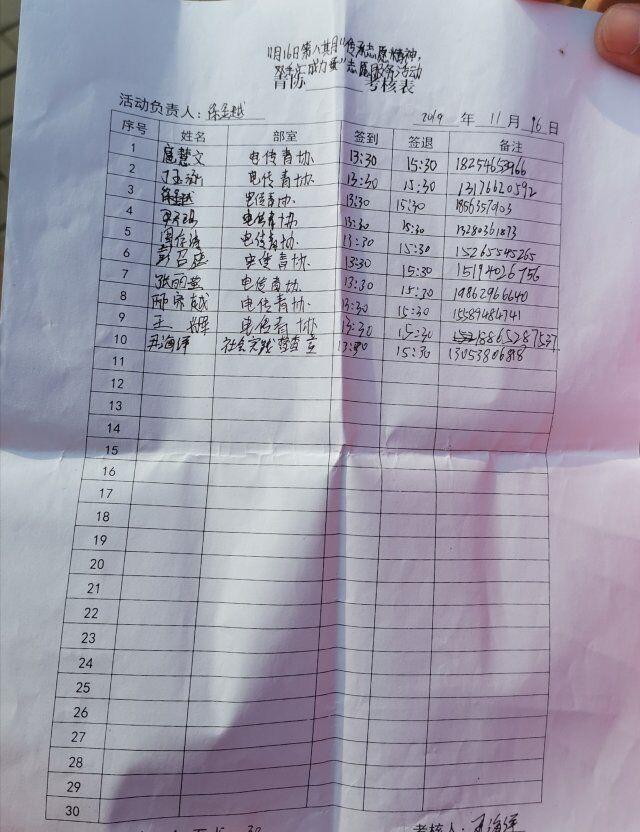 11月16日第八期"传承志愿精神，
"志愿服务活动
青协 考核表
活动负责人：徐金越 2019 年 11 月 16 日
序号 姓名 部室 签到 签退 备注
1 扈慧文 电传青协 13:30 15:30 18254653966
2 电传青协 13:30 15:30 13176620592
3 徐金越 电传青协 13:30 15:30
4 电传青协 13:30 15:30 13280361873
5 电传青协 13:30 15:30 15265545265
6 电传青协 13:30 15:30 15194026756
7 张丽英 电传青协 13:30 15:30 19862966640
8 电传青协 13:30 15:30 15589484741
9 王 电传青协 13:30 15:30 18865287537
10 社会实践督查室 13:30 15:30 13053806818
11
12
13
14
15
16
17
18
19
20
21
22
23
24
25
26
27
28
29
30
考核人：